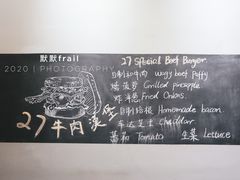 默默frail
2020 | PHOTOGRAPHY
27牛肉漢堡
27 Special Beef Burger
自制和牛肉 wagy beef Patty
烤菠萝 Grilled pineapple
炸洋葱 Fried Onions.
自制培根 Homemade bacon
车达芝士 Cheddar
蕃茄 Tomato 生菜 Lettuce